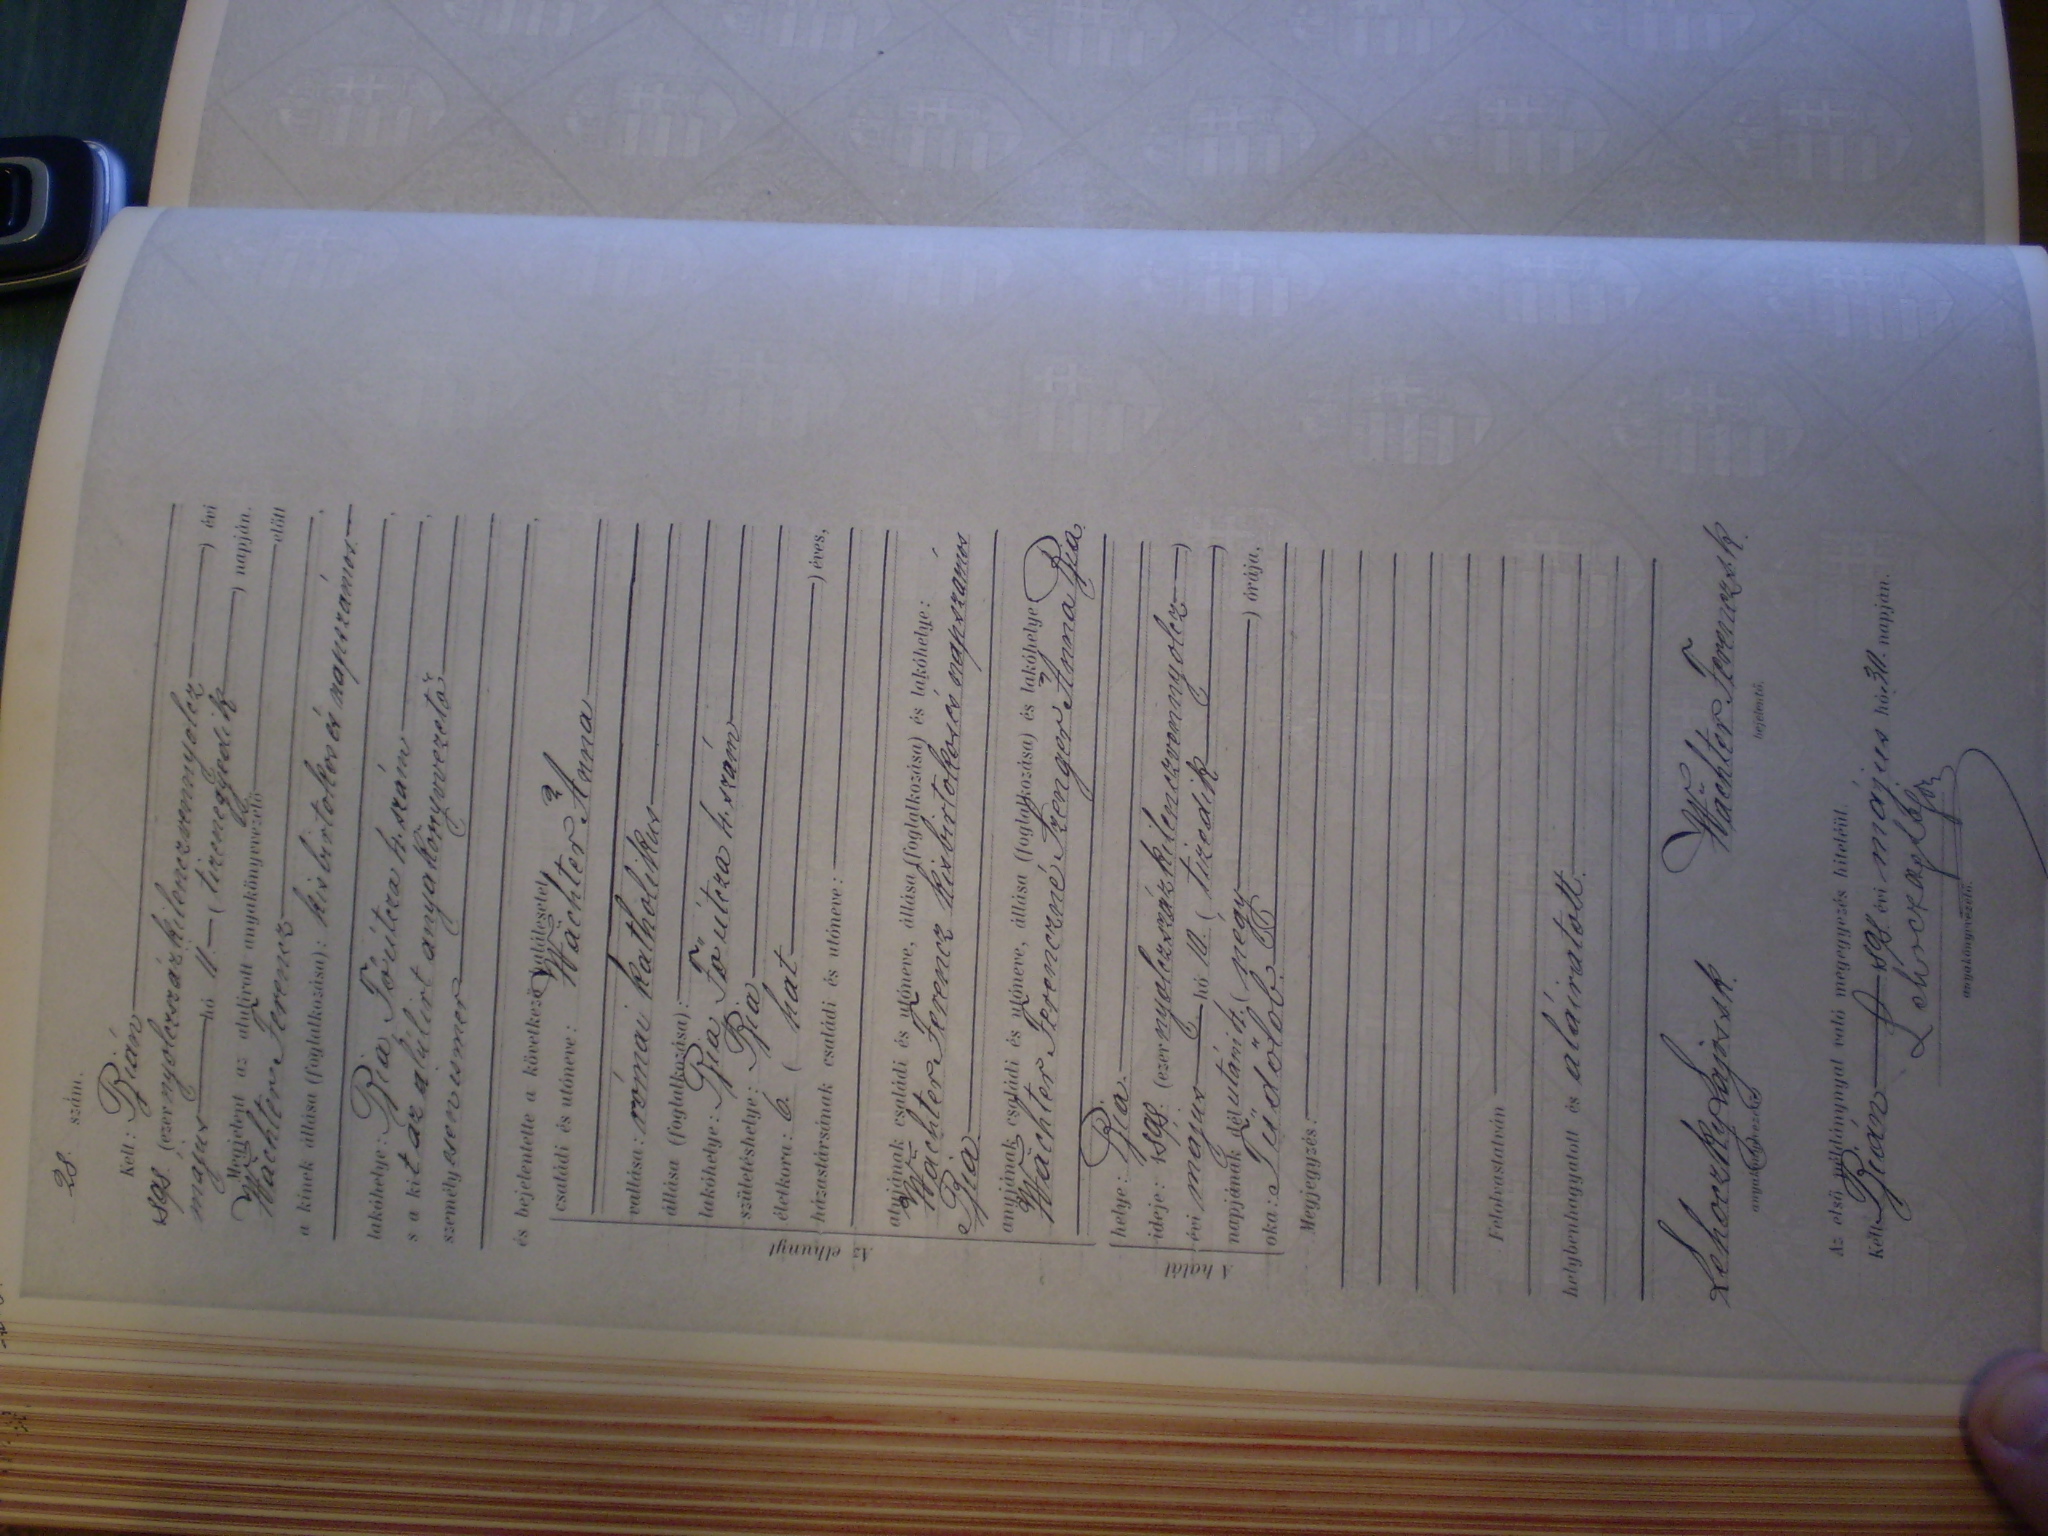 28. szám.
Kelt: Bián
1898. (ezernyolczszázkilenczvennyolcz) évi
május hó 11. (tizenegyedik) napján.
Megjelent az alulirott anyakönyvvezető előtt
Wachter Ferencz
a kinek állása (foglalkozása): kisbirtokos és napszámos,
lakóhelye: Bia Főutcza h. szám,
s a kit az alulirt anyakönyvvezető,
személyesen ismer
és bejelentette a következő halálesetet,
Az elhunyt
családi és utóneve: Wachter Anna
vallása: római katholikus
állása (foglalkozása):
lakóhelye: Bia Főutcza h. szám
születéshelye: Bia
életkora: 6. (hat) éves,
házastársának családi és utóneve:
atyjának családi és utóneve, állása (foglalkozása) és lakóhelye:
Wachter Ferencz kisbirtokos és napszámos
Bia
anyjának családi és utóneve, állása (foglalkozása) és lakóhelye
Wachter Ferenczné Szenger Anna Bia
A halál
helye: Bia.
ideje: 1898. (ezernyolczszázkilenczvennyolcz)
évi május hó 10. (tizedik)
napjának dél utáni 4. (négy) órája,
oka: Tüdőlob
Megjegyzés:
Felolvastatván
helybenhagyatott és aláiratott.
Lehoczky Lajos sk. Wachter Ferencz sk.
anyakönyvvezető bejelentő.
Az első példánynyal való megegyezés hiteléül.
Kelt Bián 1898. évi május hó 30. napján.
Lehoczky Lajos
anyakönyvvezető.